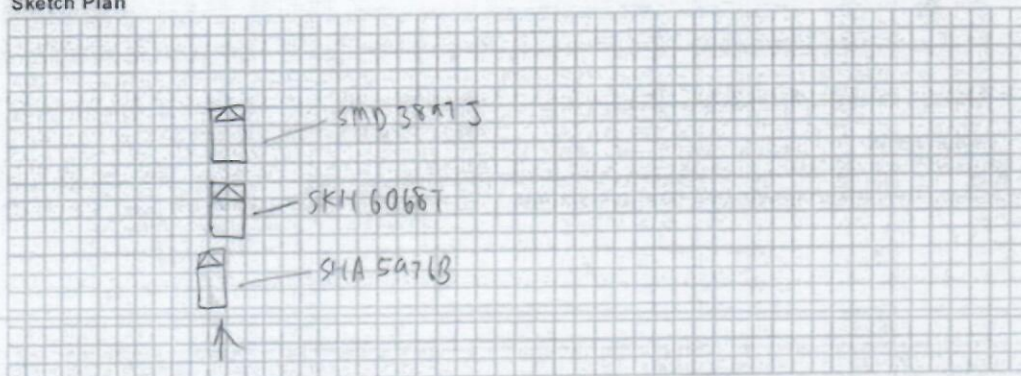 Sketch Plan
SMD 3897 J
SKH 6068T
SHA 5976B